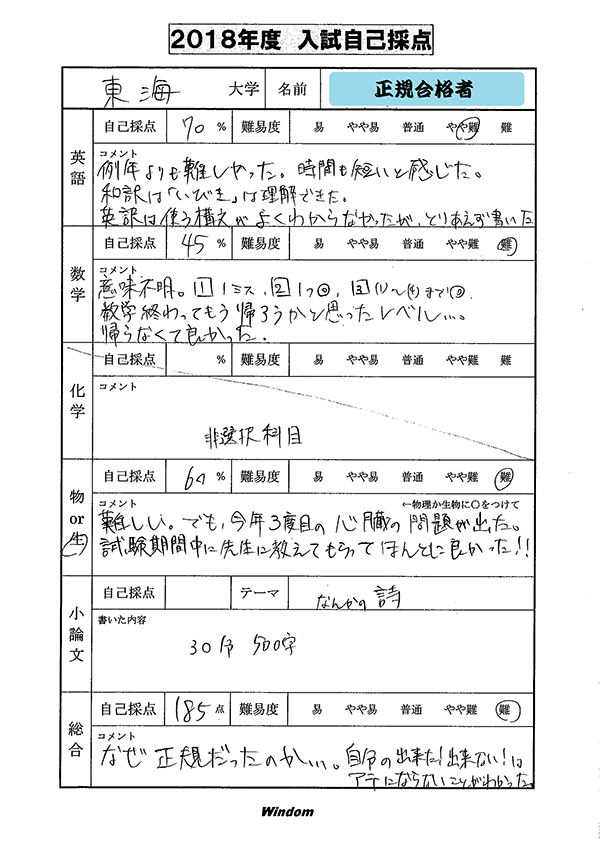 2018年度 入試自己採点
東海 大学 名前 正規合格者
英語
自己採点 70 % 難易度 易 やや易 普通 やや難 難
コメント
例年よりも難しかった。時間も短いと感じた。
和訳は「いびき」は理解できた。
英訳は使う構文がよくわからなかったが、とりあえず書いた
数学
自己採点 45 % 難易度 易 やや易 普通 やや難 難
コメント
意味不明。1 1ミス, 2 1つ◎, 3 (1)〜(4)まで◎.
数学終わってもう帰ろうかと思ったレベル...。
帰らなくて良かった.
化学
自己採点 % 難易度 易 やや易 普通 やや難 難
コメント
非選択科目
物or生
自己採点 % 難易度 易 やや易 普通 やや難 難
コメント ←物理か生物に○をつけて
難しい。でも、今年3度目の心臓の問題が出た。
試験期間中に先生に教えてもらってほんとに良かった!!
小論文
自己採点 テーマ なんかの詩
書いた内容
30分 500字
総合
自己採点 185 点 難易度 易 やや易 普通 やや難 難
コメント
なぜ正規だったのか...。自分の出来た!出来ない!は
アテにならないことがわかった。
Windom